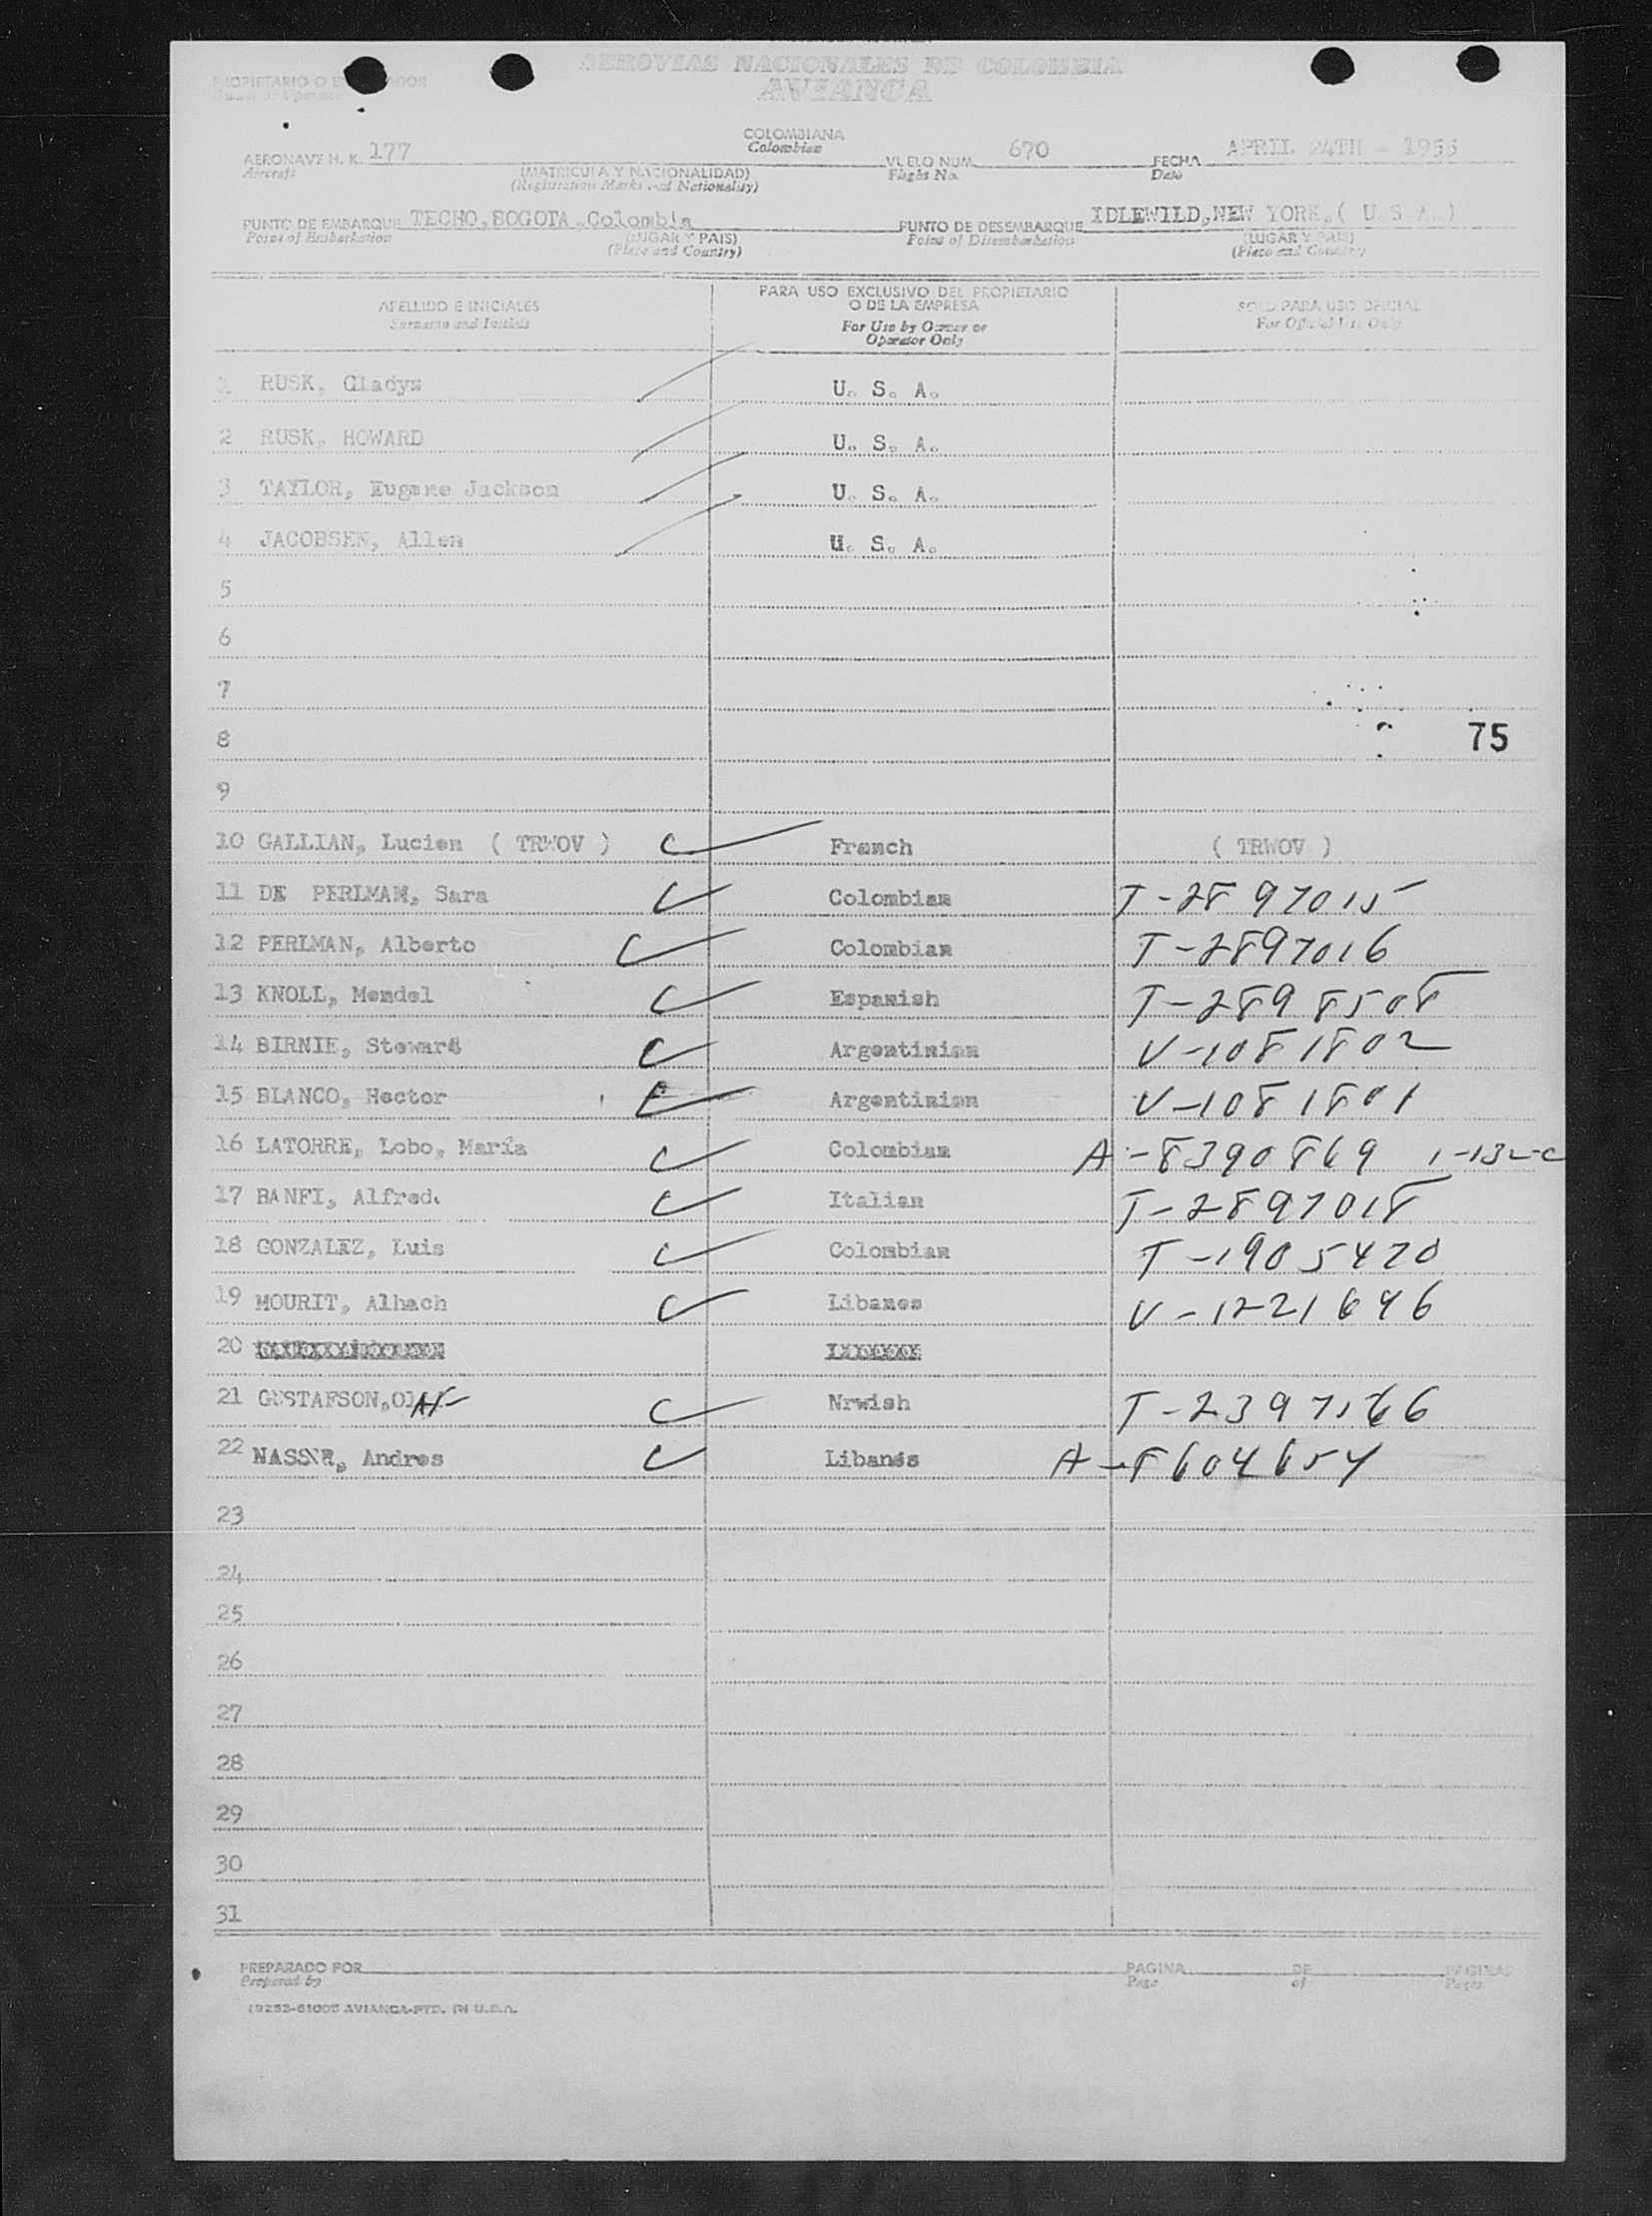 AEROVIAS NACIONALES DE COLOMBIA
AVIANCA
PROPIETARIO O
COLOMBIANA
Colombian
AERONAVE H. K. 177 VUELO NUM. 670 FECHA APRIL 24TH - 1953
Aircraft (MATRICULA Y NACIONALIDAD) Flight No. Date
(Registration Marks and Nationality)
PUNTO DE EMBARQUE TECHO, BOGOTA, Colombia PUNTO DE DESEMBARQUE IDLEWILD, NEW YORK, ( U S A )
Point of Embarkation (LUGAR Y PAIS) Point of Disembarkation (LUGAR Y PAIS)
(Place and Country) (Place and Country)
APELLIDO E INICIALES PARA USO EXCLUSIVO DEL PROPIETARIO SOLO PARA USO OFICIAL
Surname and Initials O DE LA EMPRESA For Official Use Only
For Use by Owner or
Operator Only
1 RUSK, Gladys U. S. A.
2 RUSK, HOWARD U. S. A.
3 TAYLOR, Eugene Jackson U. S. A.
4 JACOBSEN, Allen U. S. A.
5
6
7
8 75
9
10 GALLIAN, Lucien ( TRWOV ) French ( TRWOV )
11 DE PERLMAN, Sara Colombian T-2897015
12 PERLMAN, Alberto Colombian T-2897016
13 KNOLL, Mendel Espanish T-2898508
14 BIRNIE, Steward Argentinian V-1081802
15 BLANCO, Hector Argentinian V-1081801
16 LATORRE, Lobo, María Colombian A-8390869
17 BANFI, Alfred. Italian T-2897018
18 GONZALEZ, Luis Colombian T-1905470
19 MOURIT, Alhach Libanes V-1221646
20
21 GUSTAFSON, Nrwish
22 NASSER, Andres Libanés A-8604654
23
24
25
26
27
28
29
30
31
PREPARADO POR PAGINA DE PAGINAS
Prepared by Page of Pages
AVIANCA-PTD. IN U.S.A.